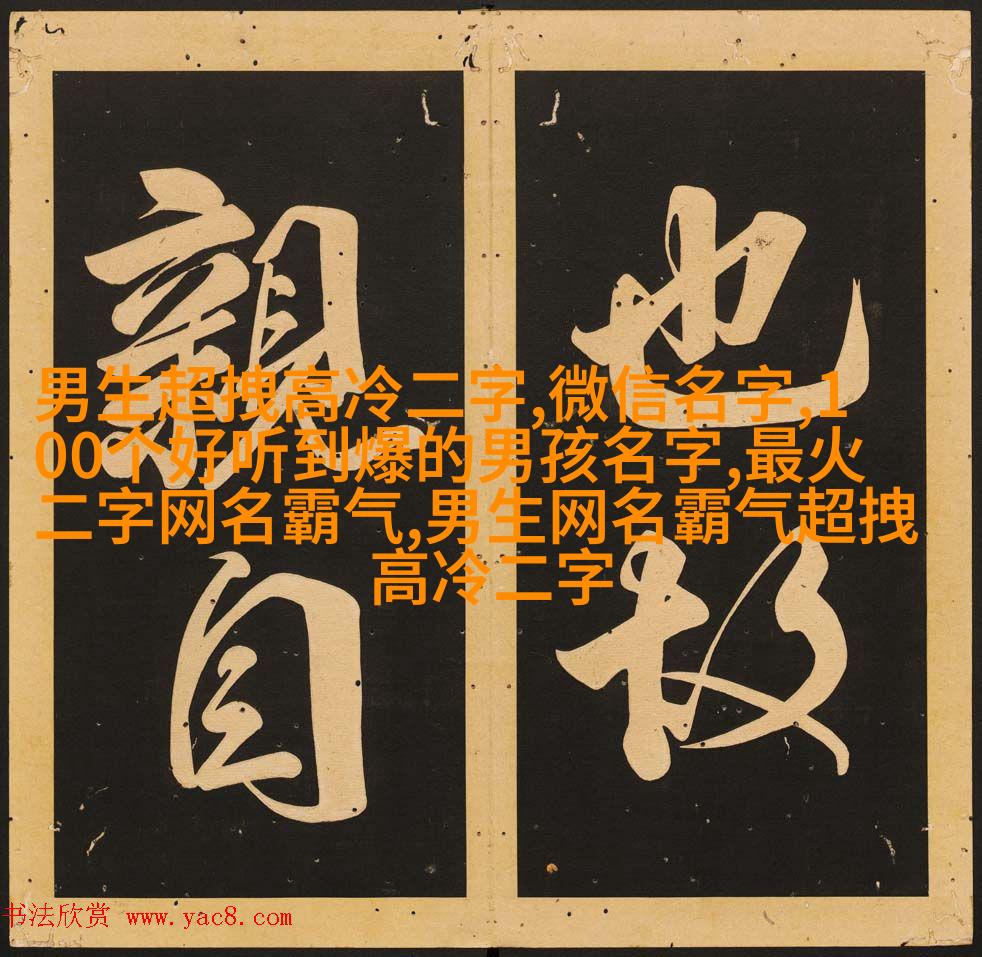 也故
親自
男生超拽高冷二字,微信名字,1
00个好听到爆的男孩名字,最火
二字网名霸气,男生网名霸气超拽
高冷二字
书法欣赏 www.yac8.com